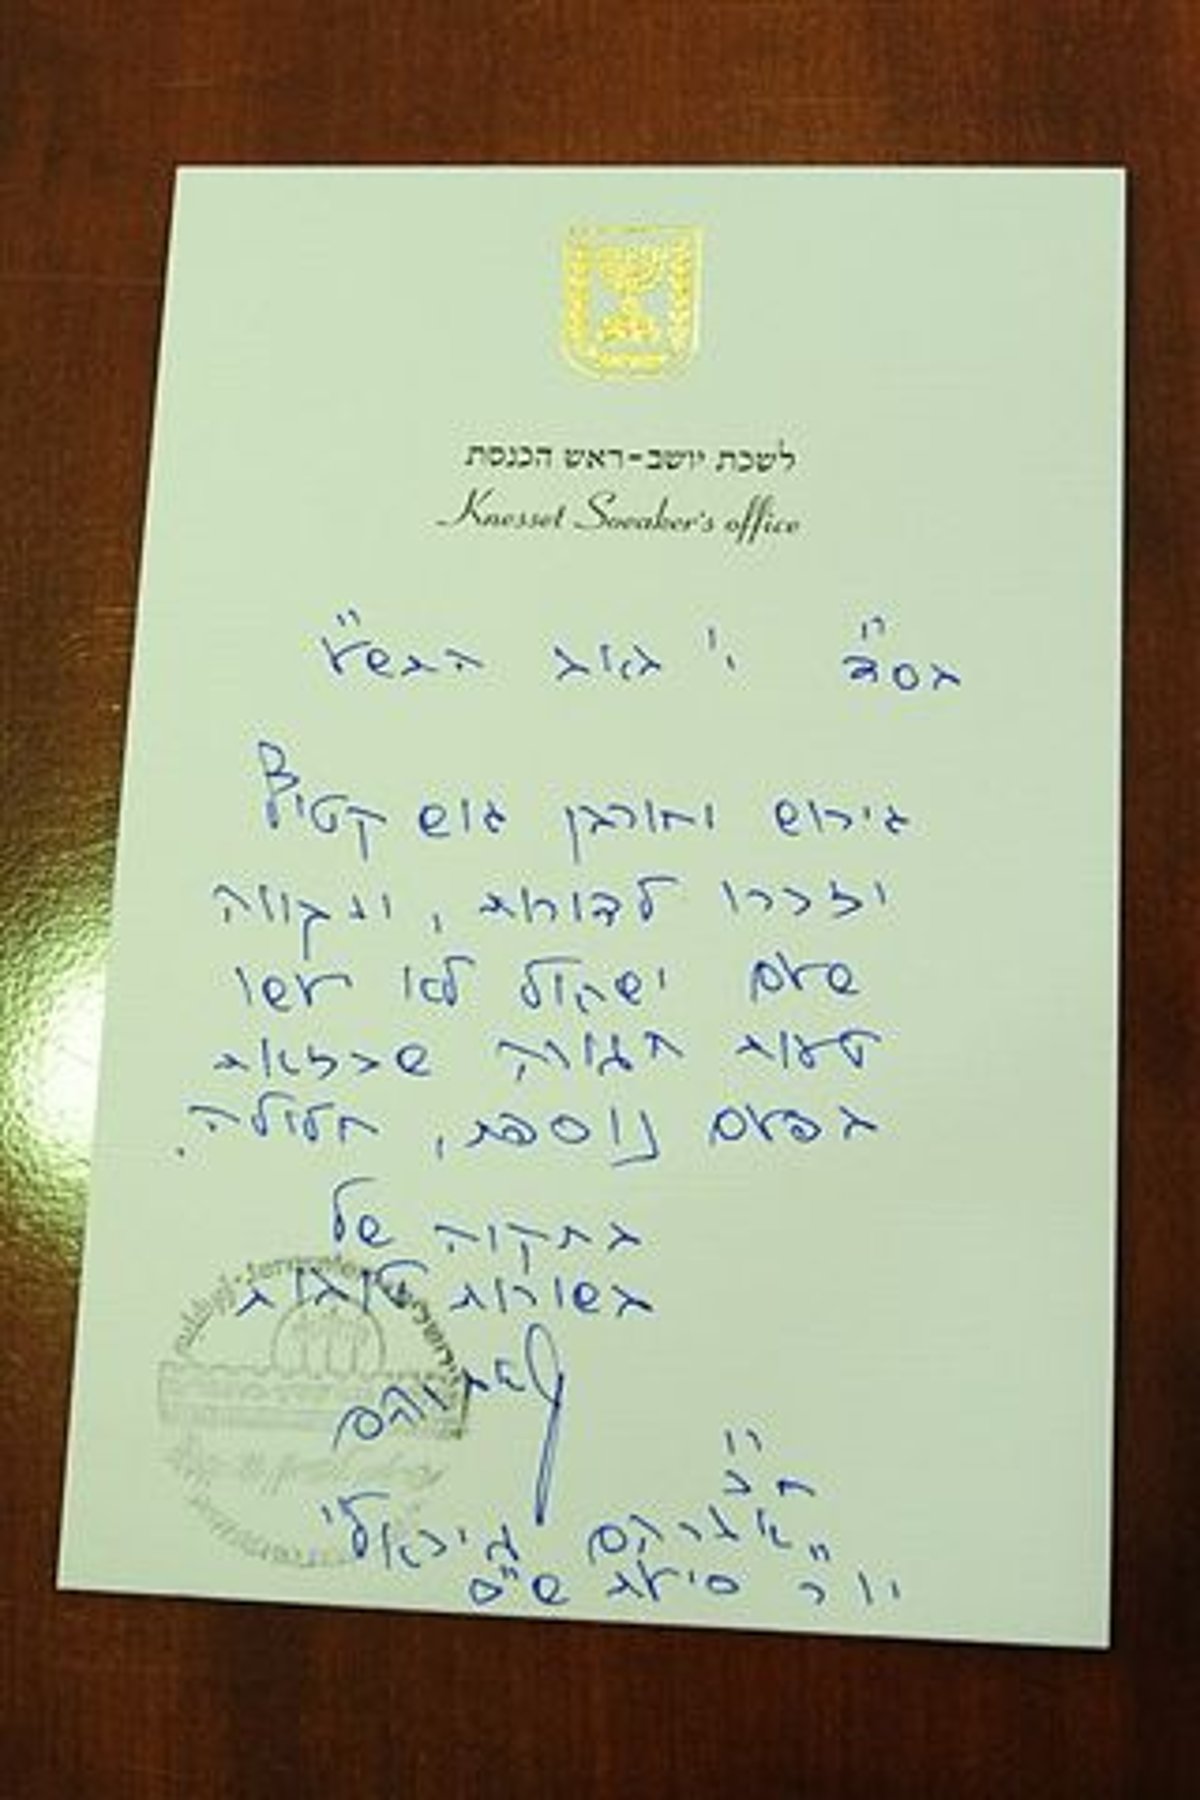 לשכת יושב-ראש הכנסת
Knesset Speaker's office
בס"ד י' באב התש"ע
גירוש וחורבן גוש קטיף
יזכרו לדורות, ונקווה
שעם ישראל לא יעשו
טעות חמורה שכזאת
בפעם נוספת, חלילה.
בתקוה של
בשורות טובות
אברהם
ח"כ
אברהם מיכאלי
יו"ר סיעת ש"ס